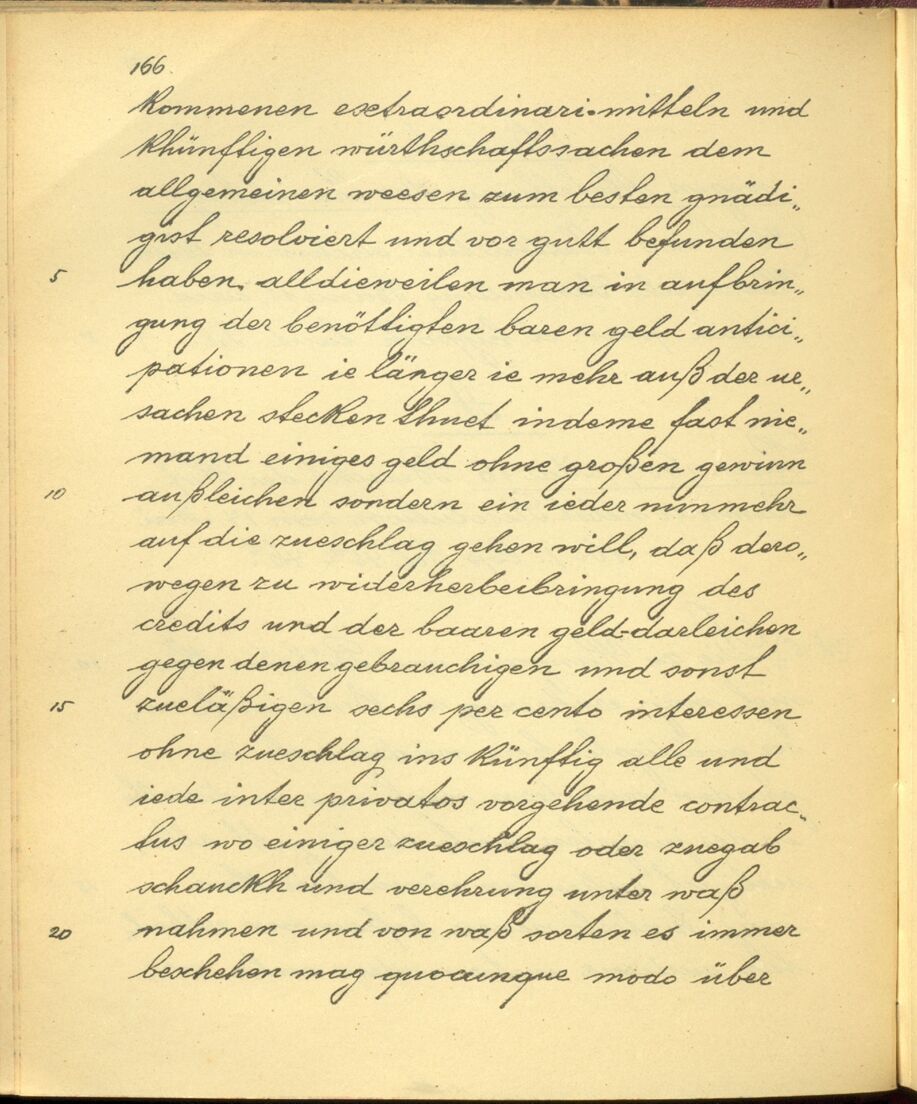 166.
kommenen extraordinari-mitteln und
khünftigen würthschaftssachen dem
allgemeinen weesen zum besten gnädi„
gist resolviert und vor gutt befunden
5 haben. alldieweilen man in aufbrin„
gung der benöttigten baren geld antici„
pationen ie länger ie mehr auß der ur„
sachen stecken thuet indeme fast nie„
mand einiges geld ohne großen gewinn
10 außleichen sondern ein ieder nunmehr
auf die zueschlag gehen will, daß dero„
wegen zu widerherbeibringung des
credits und der baaren geld-darleichen
gegen denen gebrauchigen und sonst
15 zueläßigen sechs per cento interessen
ohne zueschlag ins künftig alle und
iede inter privatos vorgehende contrac„
tus wo einiger zueschlag oder zuegab
schanckh und verehrung unter waß
20 nahmen und von waß sorten es immer
beschehen mag quocunque modo über